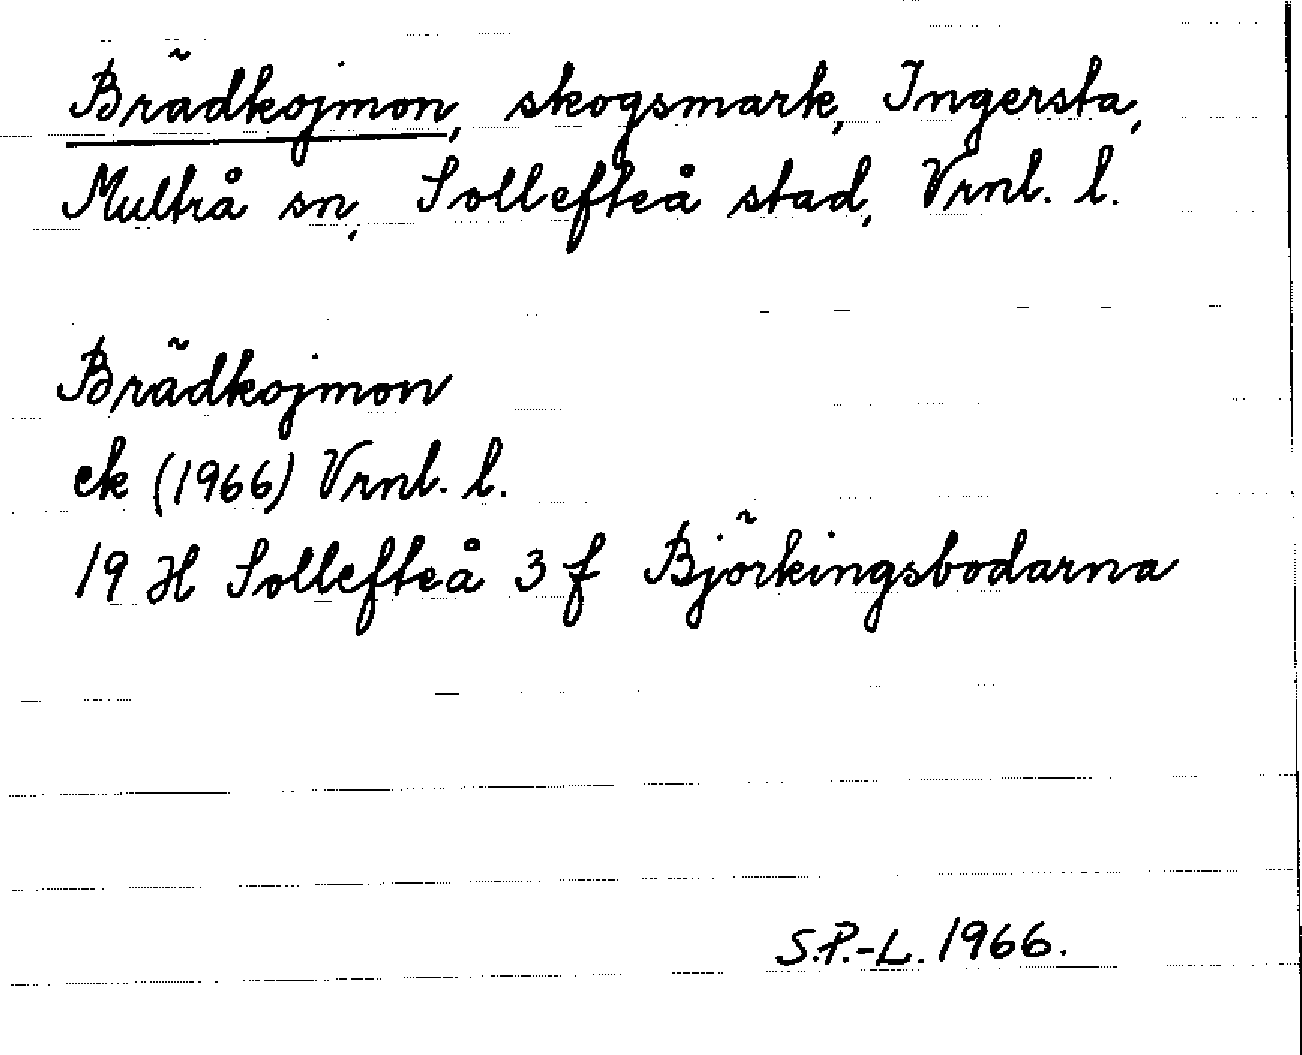 Brädkojmon, skogsmark, Ingersta,
Multrå sn, Sollefteå stad, Vrnl. l.
Brädkojmon
ek (1966) Vrnl. l.
19 H Sollefteå 3 f Björkingsbodarna
S.P.-L. 1966.